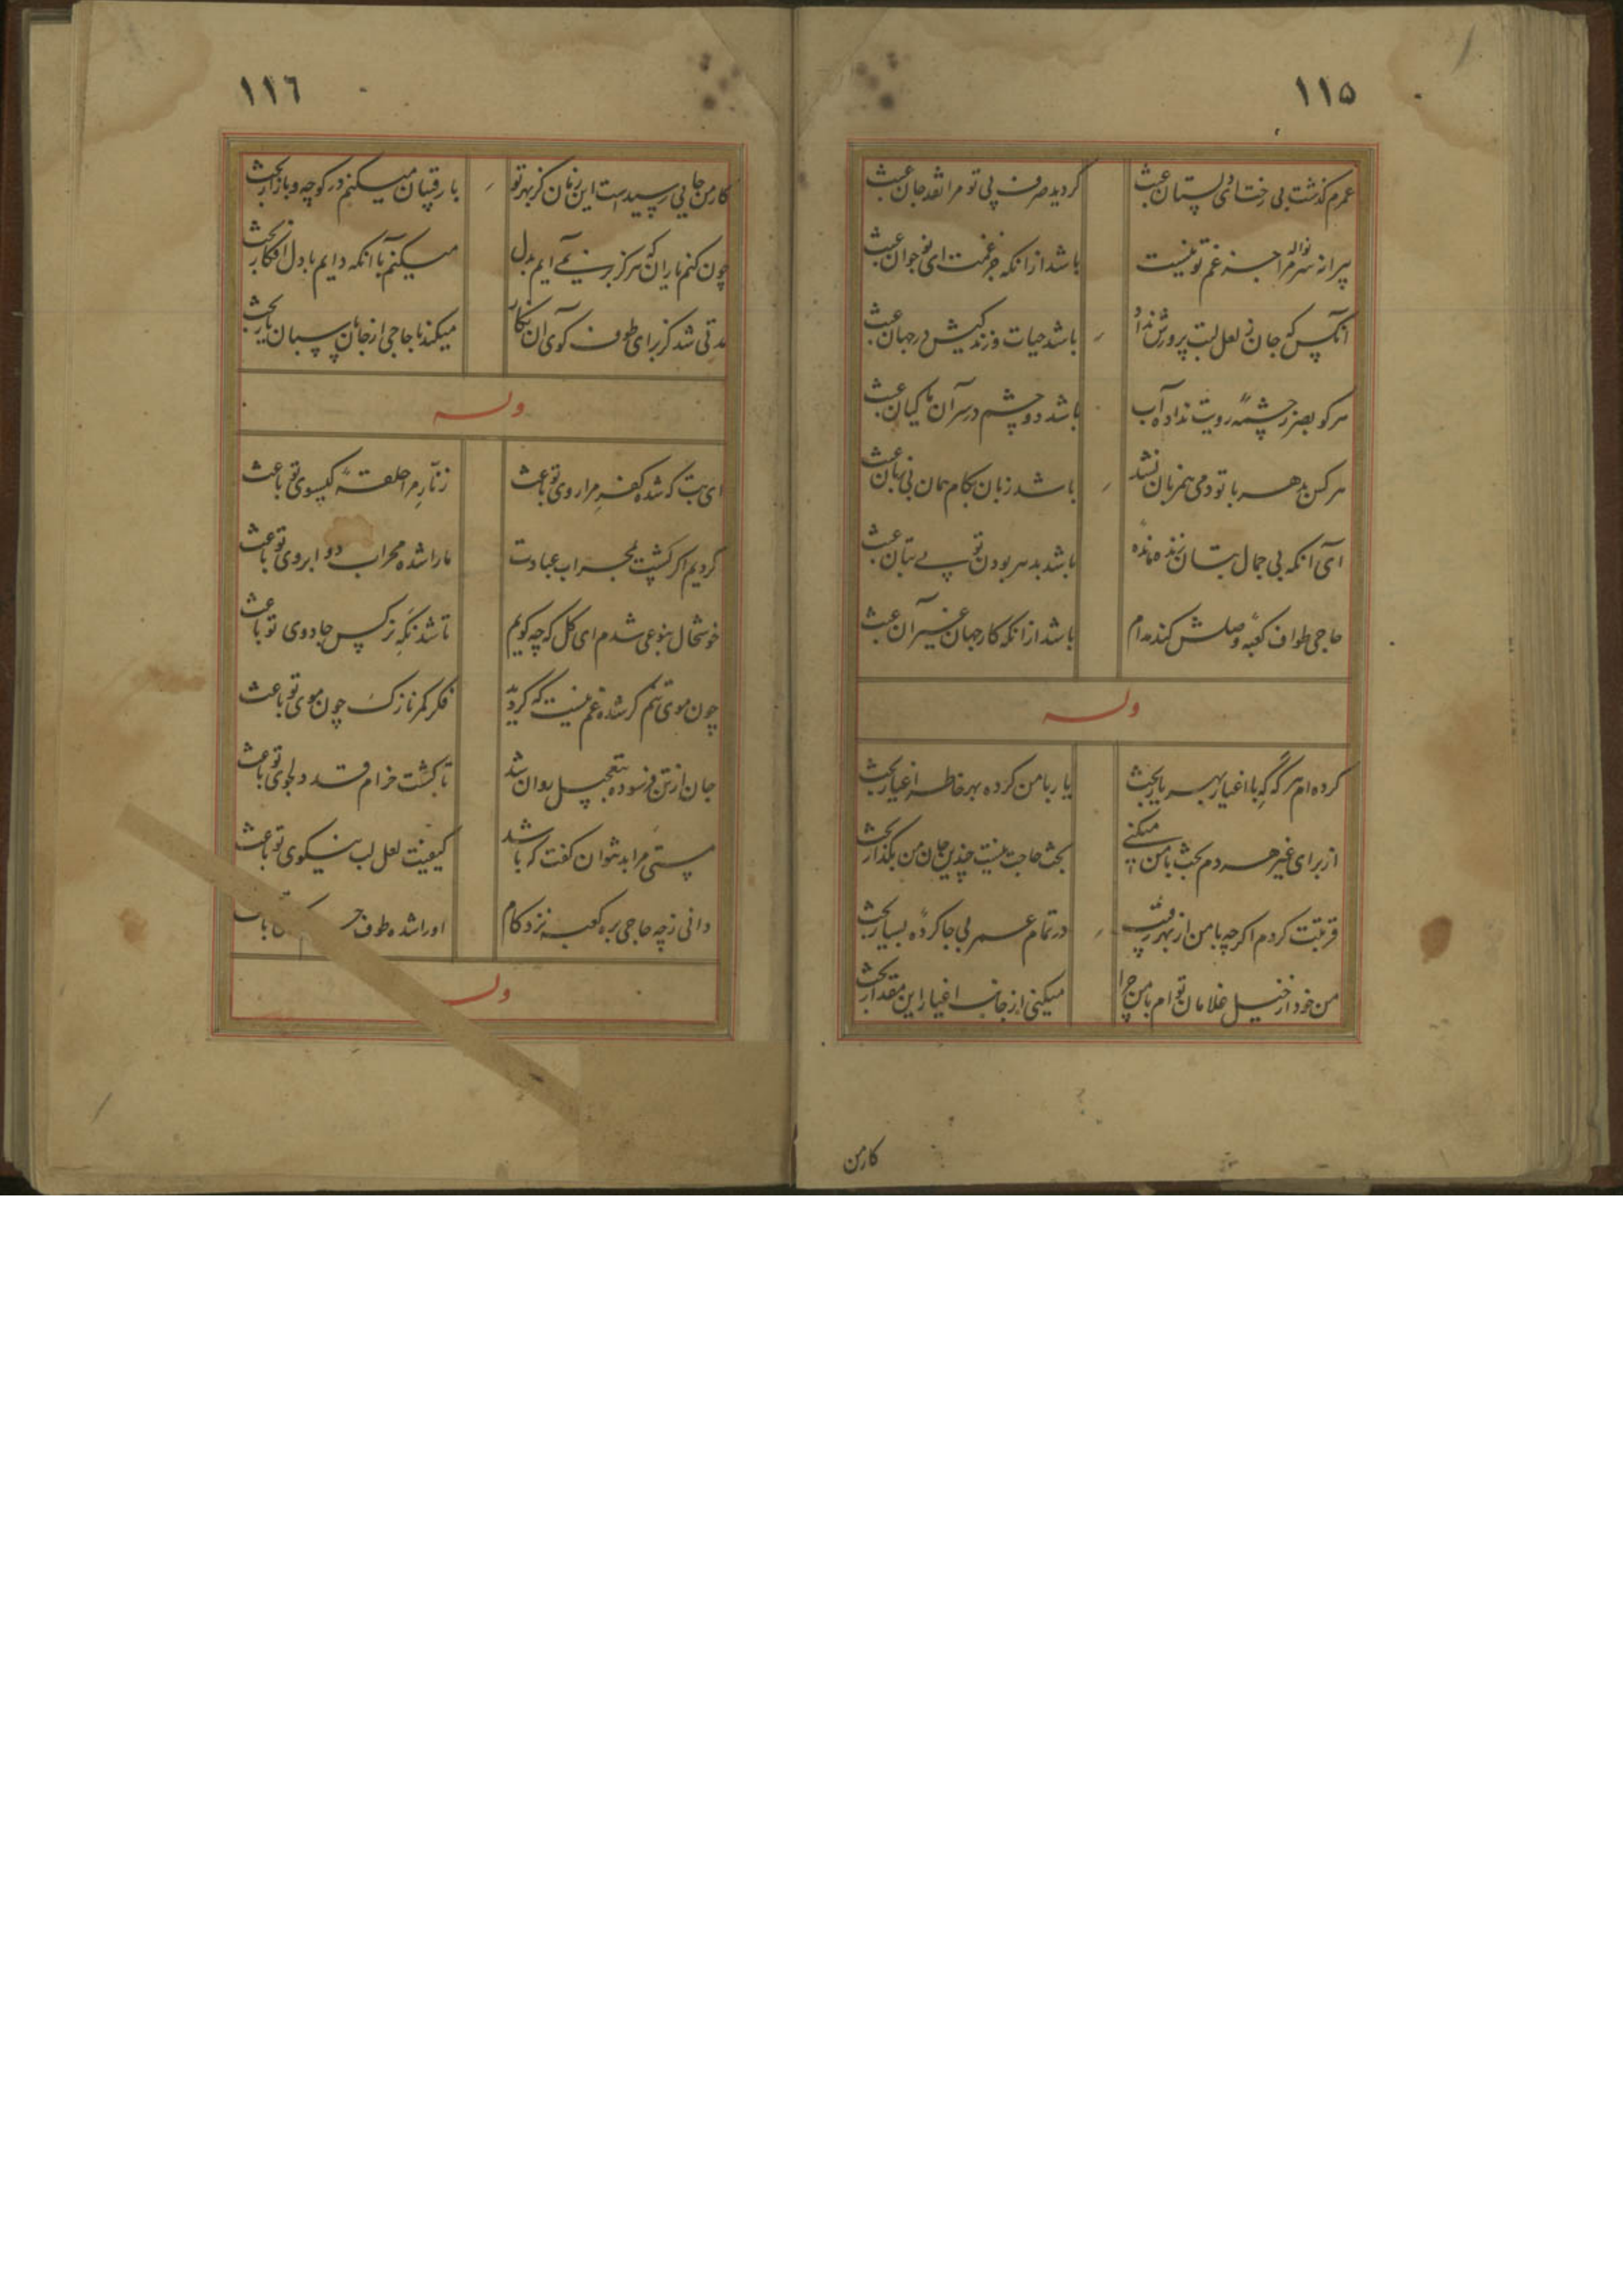 ١١٥
عمرم کذشت بی رخت ای دلستان عبث
کردید صرف پی تو مرا نقد جان عبث
پیرانه سر مرا نواله جز غم تو نیست
باشد از انکه جز غمت ای نوجوان عبث
آنکس که جان ز لعل لبت پرورش نداد
باشد حیات و زندکیش در جهان عبث
هر کو بصر ز چشمهٔ رویت نداد آب
باشد دو چشم در سر آن ماکیان عبث
هر کس بدهر با تو دمی همزبان نشد
باشد زبان بکام همان بی زبان عبث
ای آنکه بی جمال بتان زنده مانده
باشد بدهر بودن تو بی بتان عبث
حاجی طواف کعبه وصلش کند مدام
باشد از انکه کار جهان غیر آن عبث
وله
کرده ام هر که که با اغیار بهر یار بحث
یار با من کرده بهر خاطر اغیار بحث
از برای غیر هر دم بحث با من میکنی
بحث حاجت نیست چندین جان من بکذار بحث
قربتت کردم اکرچه با من از بهر رقیب
در تمام عمر بی جا کردهٔ بسیار بحث
من خود از خیل غلامان توام با من چرا
میکنی از جانب اغیار این مقدار بحث
کار من
١١٦
کار من جایی رسیدست این زمان کز بهر تو
با رقیبان میکنم در کوچه و بازار بحث
چون کنم یاران که هرکز بر نمی آیم بدل
میکنم با آنکه دایم با دل افکار بحث
مدتی شد کز برای طوف کوی آن نکار
میکند با حاجی از جان پاسبان یار بحث
وله
ای بت که شده کفر مرا روی تو باعث
زنار مرا حلقهٔ کیسوی تو باعث
کردیم اکر پشت بمحراب عبادت
ما را شده محراب دو ابروی تو باعث
خوشحال بنوعی شدم ای کل که چه کویم
تا شد نکه نرکس جادوی تو باعث
چون موی تنم کر شده غم نیست که کردید
فکر کمر نازک چون موی تو باعث
جان از تن فرسوده بتعجیل روان شد
تا کشت خرام قد دلجوی تو باعث
مستی مرا بد نتوان کفت که باشد
کیفیت لعل لب نیکوی تو باعث
دانی ز چه حاجی بره کعبه نزد کام
او را شده طوف
وله